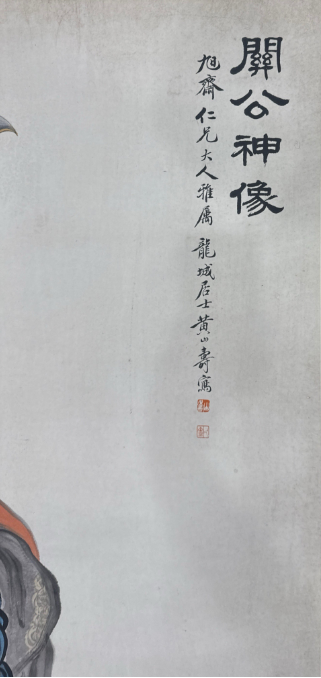 關公神像
旭齋仁兄大人雅屬龍城居士黃山壽寫